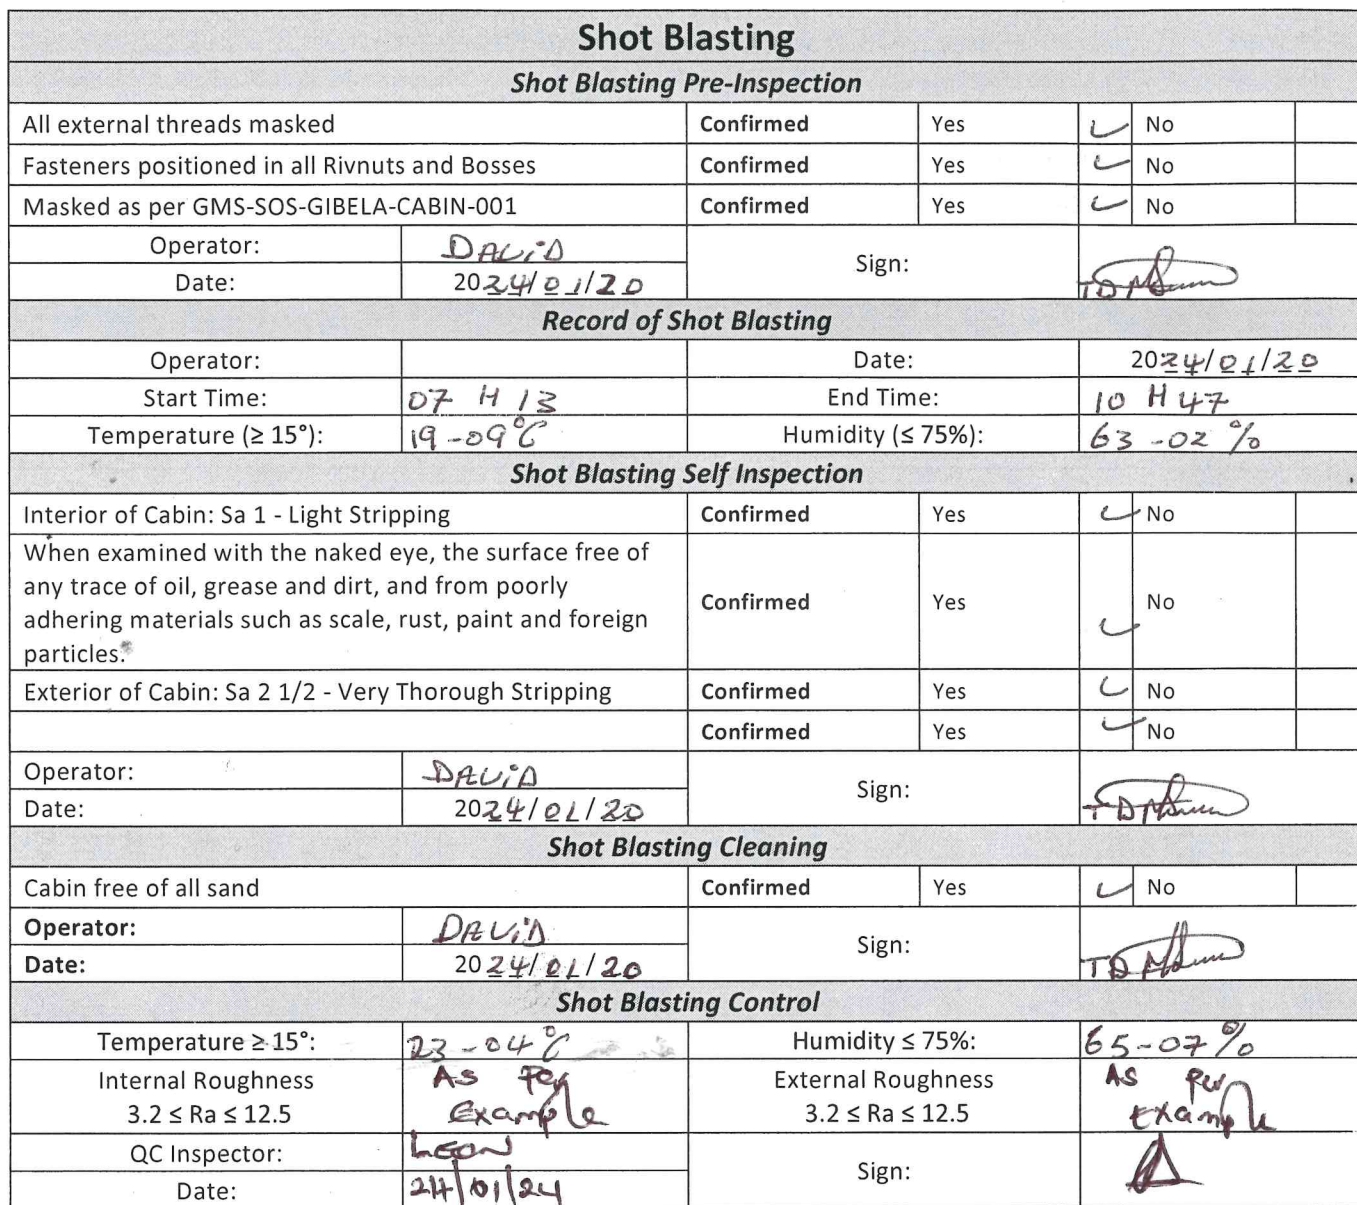 Shot Blasting
Shot Blasting Pre-Inspection
All external threads masked Confirmed Yes ✓ No
Fasteners positioned in all Rivnuts and Bosses Confirmed Yes ✓ No
Masked as per GMS-SOS-GIBELA-CABIN-001 Confirmed Yes ✓ No
Operator: DAViD Sign:
Date: 2024/01/20
Record of Shot Blasting
Operator: Date: 2024/01/20
Start Time: 07 H 13 End Time: 10 H 47
Temperature (≥ 15°): 19-09°C Humidity (≤ 75%): 63-02%
Shot Blasting Self Inspection
Interior of Cabin: Sa 1 - Light Stripping Confirmed Yes ✓ No
When examined with the naked eye, the surface free of
any trace of oil, grease and dirt, and from poorly
adhering materials such as scale, rust, paint and foreign
particles. Confirmed Yes ✓ No
Exterior of Cabin: Sa 2 1/2 - Very Thorough Stripping Confirmed Yes ✓ No
Confirmed Yes ✓ No
Operator: DAViD Sign:
Date: 2024/01/20
Shot Blasting Cleaning
Cabin free of all sand Confirmed Yes ✓ No
Operator: DAViD Sign:
Date: 2024/01/20
Shot Blasting Control
Temperature ≥ 15°: 23-04°C Humidity ≤ 75%: 65-07%
Internal Roughness As Per External Roughness As Per
3.2 ≤ Ra ≤ 12.5 Example 3.2 ≤ Ra ≤ 12.5 Example
QC Inspector: LEON Sign:
Date: 24/01/24